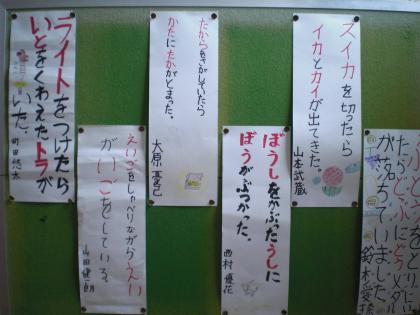 たらどぶにどうメダル
が落ちていました。
鈴木愛
スイカを切ったら
イカとカイが出てきた。
山本武蔵
ぼうしをかぶったうしに
ぼうがぶつかった。
西村優花
たからをさがしていたら
かたにたかがとまった。
大原
えいごをしゃべりながらえい
がいごをしている。
山田健
ライトをつけたら
いとをくわえたトラが
いた。
町田悠太